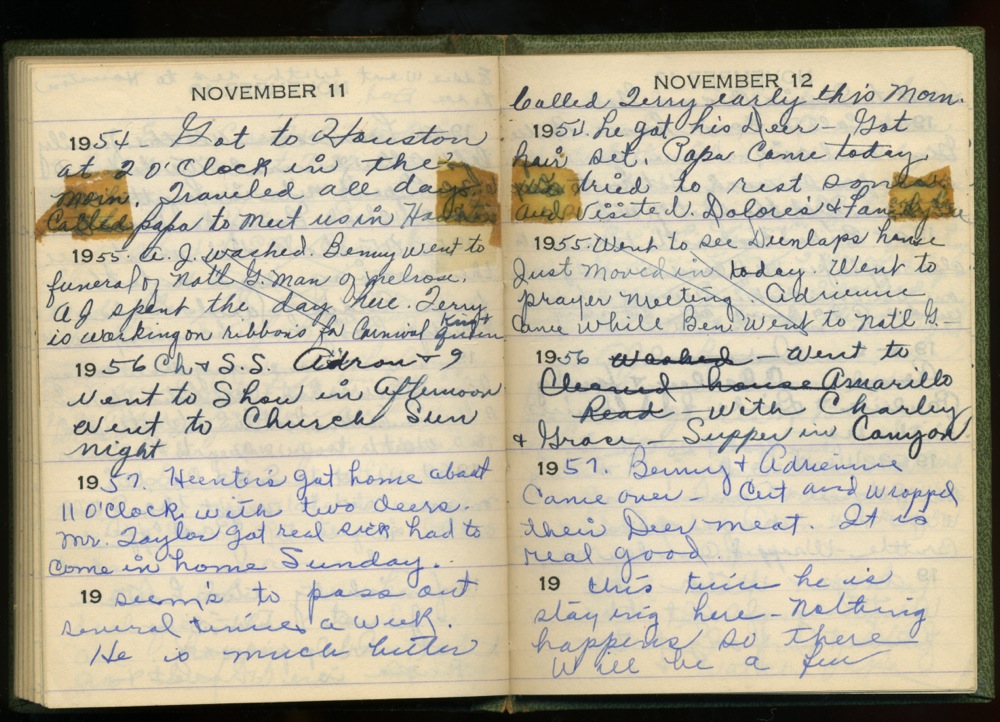 NOVEMBER 11
1954. Got to Houston
at 2 O'Clock in the
morn. Traveled all day.
Called papa to meet us in
1955. A. J. washed. Benny went to
funeral of Natl G. Man of Melrose.
A J spent the day here. Terry
is working on ribbons for Carnival King &
Queen
1956 Ch & S.S. Adron & I
went to Show in Afternoon
went to Church Sun
night
1957. Hunters got home about
11 O'Clock with two deers.
Mr. Taylor got real sick had to
come in home Sunday.
19 seem's to pass out
several times a week.
He is much better
NOVEMBER 12
Called Terry early this Morn.
1954. he got his Deer - Got
hair set. Papa Came today
tried to rest some
and visited. Dolores & Family
1955. Went to see Dunlaps house
Just Moved in today. Went to
prayer Meeting. Adrienne
Came While Ben Went to Natl G. -
1956 Washed - Went to
Cleaned house Amarillo
Read - With Charley
& Grace - Supper in Canyon
1957. Benny & Adrienne
Came over - Cut and wrapped
their Deer meat. It is
real good.
19 this time he is
staying here - Nothing
happens so there
will be a few